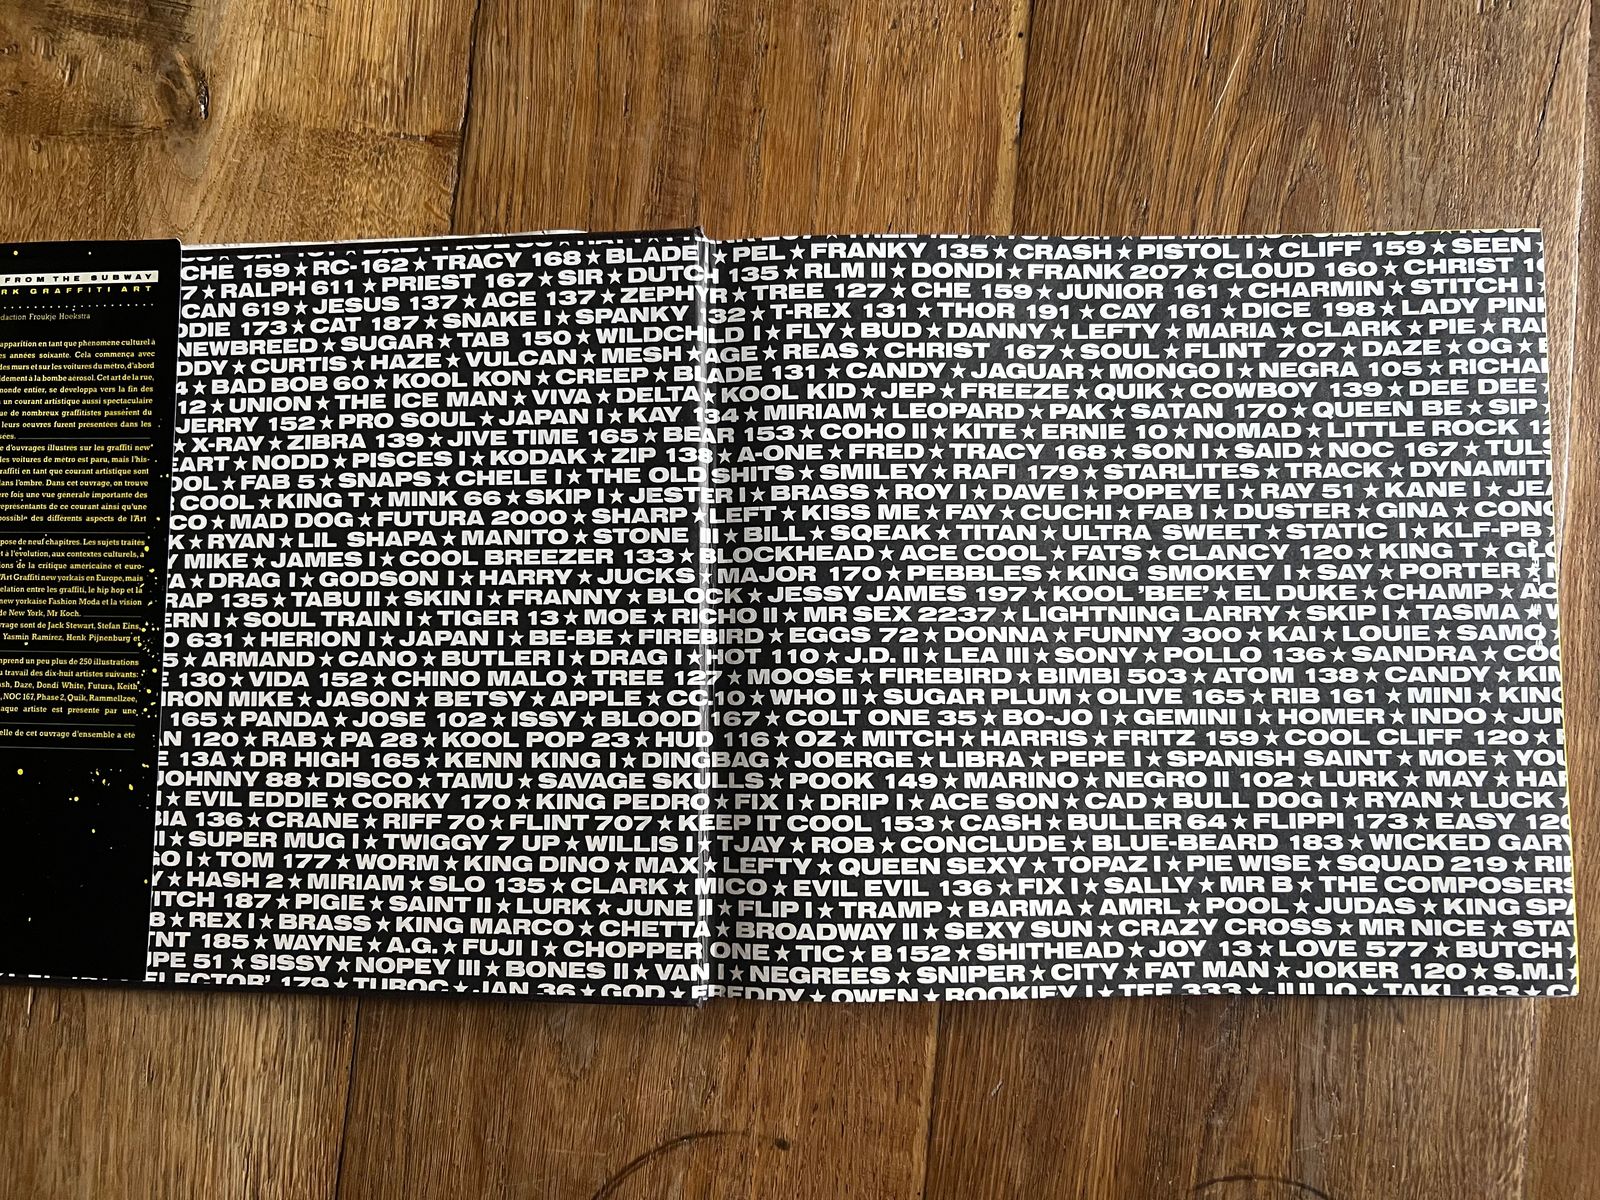 FROM THE SUBWAY
RK GRAFFITI ART
daction Froukje Hoekstra
apparition en tant que phenomene culturel à
es années soixante. Cela commença avec
des murs et sur les voitures du métro, d'abord
idement à la bombe aérosol. Cet art de la rue,
monde entier, se developpa vers la fin des
un courant artistique aussi spectaculaire
ue de nombreux graffitistes passèrent du
leurs oeuvres furent présentées dans les
sées.
e d'ouvrages illustres sur les graffiti new
les voitures de métro est paru, mais l'his-
raffiti en tant que courant artistique sont
dans l'ombre. Dans cet ouvrage, on trouve
ère fois une vue generale importante des
représentants de ce courant ainsi qu'une
possible des differents aspects de l'Art
pose de neuf chapitres. Les sujets traités
et à l'evolution, aux contextes culturels, à
ions de la critique américaine et euro-
'Art Graffiti new yorkais en Europe, mais
elation entre les graffiti, le hip hop et la
new yorkaise Fashion Moda et la vision
de New York, Mr Koch.
vrage sont de Jack Stewart, Stefan Eins,
Yasmin Ramirez, Henk Pijnenburg et
mprend un peu plus de 250 illustrations
u travail des dix-huit artistes suivants:
ash, Daze, Dondi White, Futura, Keith
, NOC 167, Phase 2, Quik, Rammellzee,
aque artiste est presente par une
elle de cet ouvrage d'ensemble a été
PEL ★ FRANKY 135 ★ CRASH ★ PISTOL I ★ CLIFF 159 ★ SEEN
CHE 159 ★ RC-162 ★ TRACY 168 ★ BLADE ★ 135 ★ RLM II ★ DONDI ★ FRANK 207 ★ CLOUD 160 ★ CHRIST
7 ★ RALPH 611 ★ PRIEST 167 ★ SIR ★ DUTCH ★ TREE 127 ★ CHE 159 ★ JUNIOR 161 ★ CHARMIN ★ STITCH I
CAN 619 ★ JESUS 137 ★ ACE 137 ★ ZEPHYR ★ T-REX 131 ★ THOR 191 ★ CAY 161 ★ DICE 198 ★ LADY PIN
DDIE 173 ★ CAT 187 ★ SNAKE I ★ SPANKY 132 ★ FLY ★ BUD ★ DANNY ★ LEFTY ★ MARIA ★ CLARK ★ PIE ★ RA
NEWBREED ★ SUGAR ★ TAB 150 ★ WILDCHILD I ★ REAS ★ CHRIST 167 ★ SOUL ★ FLINT 707 ★ DAZE ★ OG ★
DDY ★ CURTIS ★ HAZE ★ VULCAN ★ MESH ★ AGE ★ BLADE 131 ★ CANDY ★ JAGUAR ★ MONGO I ★ NEGRA 105 ★ RICHA
4 ★ BAD BOB 60 ★ KOOL KON ★ CREEP ★ KOOL KID ★ JEP ★ FREEZE ★ QUIK ★ COWBOY 139 ★ DEE DEE ★
12 ★ UNION ★ THE ICE MAN ★ VIVA ★ DELTA ★ MIRIAM ★ LEOPARD ★ PAK ★ SATAN 170 ★ QUEEN BE ★ SIP ★
JERRY 152 ★ PRO SOUL ★ JAPAN I ★ KAY 134 ★ COHO II ★ KITE ★ ERNIE 10 ★ NOMAD ★ LITTLE ROCK 12
★ X-RAY ★ ZIBRA 139 ★ JIVE TIME 165 ★ BEAR 153 ★ A-ONE ★ FRED ★ TRACY 168 ★ SON I ★ SAID ★ NOC 167 ★ TUL
EART ★ NODD ★ PISCES I ★ KODAK ★ ZIP 138 ★ SMILEY ★ RAFI 179 ★ STARLITES ★ TRACK ★ DYNAMIT
OOL ★ FAB 5 ★ SNAPS ★ CHELE I ★ THE OLD SHITS ★ BRASS ★ ROY I ★ DAVE I ★ POPEYE I ★ RAY 51 ★ KANE I ★ JE
COOL ★ KING T ★ MINK 66 ★ SKIP I ★ JESTER I ★ LEFT ★ KISS ME ★ FAY ★ CUCHI ★ FAB I ★ DUSTER ★ GINA ★ CON
CO ★ MAD DOG ★ FUTURA 2000 ★ SHARP ★ BILL ★ SQEAK ★ TITAN ★ ULTRA SWEET ★ STATIC I ★ KLF-PB
K ★ RYAN ★ LIL SHAPA ★ MANITO ★ STONE ★ BLOCKHEAD ★ ACE COOL ★ FATS ★ CLANCY 120 ★ KING T ★
Y MIKE ★ JAMES I ★ COOL BREEZER 133 ★ MAJOR 170 ★ PEBBLES ★ KING SMOKEY I ★ SAY ★ PORTER
A ★ DRAG I ★ GODSON I ★ HARRY ★ JUCKS ★ JESSY JAMES 197 ★ KOOL 'BEE' ★ EL DUKE ★ CHAMP ★ AC
RAP 135 ★ TABU II ★ SKIN I ★ FRANNY ★ BLOCK ★ MR SEX 2237 ★ LIGHTNING LARRY ★ SKIP I ★ TASMA ★
ERN I ★ SOUL TRAIN I ★ TIGER 13 ★ MOE ★ RICHO II ★ EGGS 72 ★ DONNA ★ FUNNY 300 ★ KAI ★ LOUIE ★ SAMO
O 631 ★ HERION I ★ JAPAN I ★ BE-BE ★ FIREBIRD ★ HOT 110 ★ J.D. II ★ LEA III ★ SONY ★ POLLO 136 ★ SANDRA ★ CO
5 ★ ARMAND ★ CANO ★ BUTLER I ★ DRAG I ★ MOOSE ★ FIREBIRD ★ BIMBI 503 ★ ATOM 138 ★ CANDY ★ KIM
E 130 ★ VIDA 152 ★ CHINO MALO ★ TREE 127 ★ WHO II ★ SUGAR PLUM ★ OLIVE 165 ★ RIB 161 ★ MINI ★ KING
IRON MIKE ★ JASON ★ BETSY ★ APPLE ★ CO 10 ★ COLT ONE 35 ★ BO-JO I ★ GEMINI I ★ HOMER ★ INDO ★ JUN
165 ★ PANDA ★ JOSE 102 ★ ISSY ★ BLOOD 167 ★ OZ ★ MITCH ★ HARRIS ★ FRITZ 159 ★ COOL CLIFF 120 ★
N 120 ★ RAB ★ PA 28 ★ KOOL POP 23 ★ HUD 116 ★ JOERGE ★ LIBRA ★ PEPE I ★ SPANISH SAINT ★ MOE ★ YOU
E 13A ★ DR HIGH 165 ★ KENN KING I ★ DINGBAG ★ POOK 149 ★ MARINO ★ NEGRO II 102 ★ LURK ★ MAY ★ HAR
JOHNNY 88 ★ DISCO ★ TAMU ★ SAVAGE SKULLS ★ FIX I ★ DRIP I ★ ACE SON ★ CAD ★ BULL DOG I ★ RYAN ★ LUCK
I ★ EVIL EDDIE ★ CORKY 170 ★ KING PEDRO ★ KEEP IT COOL 153 ★ CASH ★ BULLER 64 ★ FLIPPI 173 ★ EASY 120
BIA 136 ★ CRANE ★ RIFF 70 ★ FLINT 707 ★ TJAY ★ ROB ★ CONCLUDE ★ BLUE-BEARD 183 ★ WICKED GARY
I ★ SUPER MUG I ★ TWIGGY 7 UP ★ WILLIS I ★ LEFTY ★ QUEEN SEXY ★ TOPAZ I ★ PIE WISE ★ SQUAD 219 ★
GO I ★ TOM 177 ★ WORM ★ KING DINO ★ MAX ★ MICO ★ EVIL EVIL 136 ★ FIX I ★ SALLY ★ MR B ★ THE COMPOSERS
Y ★ HASH 2 ★ MIRIAM ★ SLO 135 ★ CLARK ★ FLIP I ★ TRAMP ★ BARMA ★ AMRL ★ POOL ★ JUDAS ★ KING SPA
ITCH 187 ★ PIGIE ★ SAINT II ★ LURK ★ JUNE ★ BROADWAY II ★ SEXY SUN ★ CRAZY CROSS ★ MR NICE ★ STA
B ★ REX I ★ BRASS ★ KING MARCO ★ CHETTA ★ ONE ★ TIC ★ B 152 ★ SHITHEAD ★ JOY 13 ★ LOVE 577 ★ BUTCH
NT 185 ★ WAYNE ★ A.G. ★ FUJI I ★ CHOPPER ★ NEGREES ★ SNIPER ★ CITY ★ FAT MAN ★ JOKER 120 ★ S.M.I
PE 51 ★ SISSY ★ NOPEY III ★ BONES II ★ VAN I ★ FREDDY ★ OWEN ★ ROOKIEY I ★ TEE 333 ★ JULIO ★ TAKI 183 ★
FLECTOR 179 ★ TUROC ★ JAN 36 ★ GOD ★